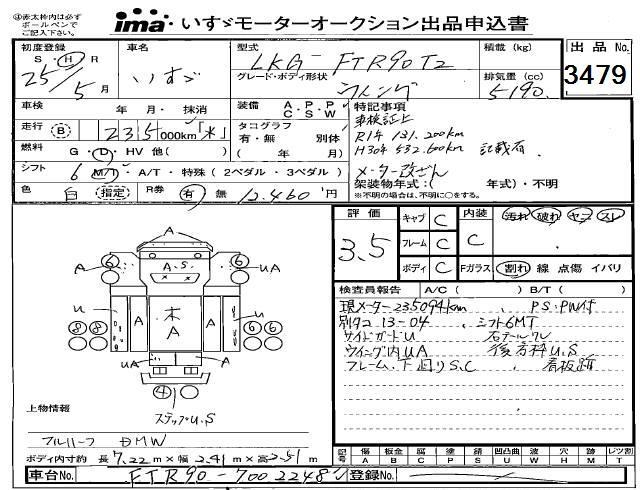 ④赤太枠内は必ず
ボールペンで
ご記入ください。
ima・いすゞモーターオークション出品申込書
初度登録
S・H・R
25年 5月
車名
いすゞ
型式
LKG-FTR90T2
グレード・ボディ形状
ウイング
積載 (kg)
排気量 (cc)
5190
出品No.
3479
車検 年 月・抹消
走行 B 235000km「米」
燃料 G・D・HV 他( )
シフト 6 M/T・A/T・特殊(2ペダル・3ペダル)
色 白 指定 R券 有 無 12,460円
装備 A・P・P
C・S・W
タコグラフ
有・無 別体
( 年 月)
特記事項
車検証上
R1年 131,200km
H30年 532,600km 記載有
メーター改ざん
架装物年式:( 年式)・不明
※不明の場合は、不明に○をする。
A
6 A 6
A A.S UA
u A 木 A A u
8 8 6 6
UA A
4
ステップU.S
上物情報
フルハーフ DMW
ボディ内寸約 長7.22m×幅2.41m×高2.51m
評価
3.5
キャブ C
フレーム C
ボディ C
内装
C
Fガラス
汚れ 破れ ヤニ スレ
割れ 線 点傷 イバリ
検査員報告 A/C( ) B/T( )
現メーター235094km、PS・PW付
別タコ 13-04、シフト6MT
サイドガードU 右テールワレ
ウイング内UA 後方枠U.S
フレーム、下廻りS.C、看板跡
記号 傷 板金 腐 塗 錆 凹凸曲 波 穴 跡 レツ割
A B C P S U W H M T
車台No. FTR90-7002248
登録No.